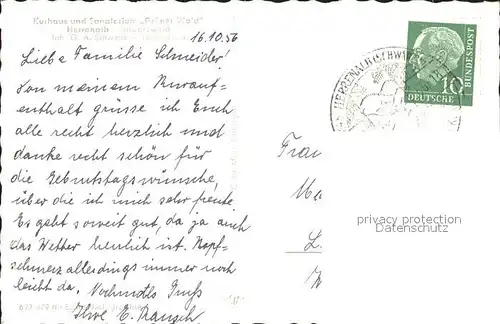 Kurhaus und Sanatorium „Grüner Wald"
Herrenalb
16.10.56
Liebe Familie Schneider!
Von meinem Kurauf-
enthalt grüsse ich Euch
alle recht herzlich und
danke recht schön für
die Geburtstagswünsche,
über die ich mich sehr freute.
Es geht soweit gut, da ja auch
das Wetter herrlich ist. Kopf-
schmerz allerdings immer noch
leicht da. Nochmals Gruß
Ihre E.
HERRENALB (SCHWARZW
10
DEUTSCHE
BUNDESPOST
Frau
privacy protection
Datenschutz